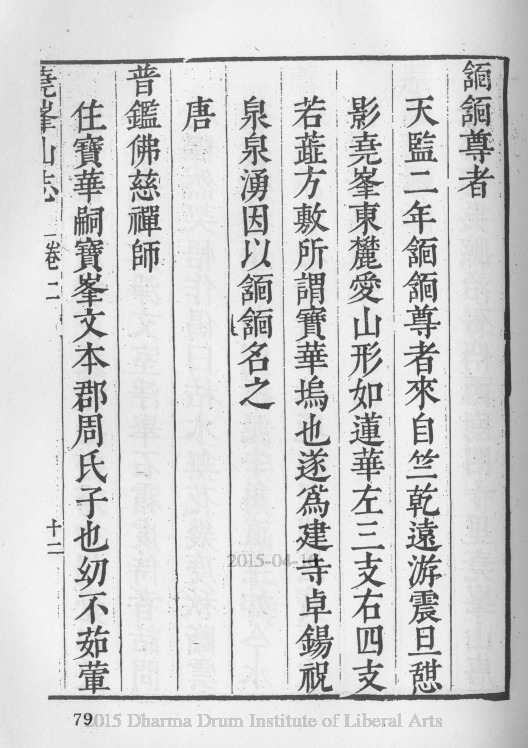 尊者
天監二年尊者來自竺乾遠游震旦憇
影堯峯東麓愛山形如蓮華左三支右四支
若方敷所謂寶華塢也遂爲建寺卓錫祝
泉泉湧因以名之
唐
普鑑佛慈禪師
住寶華嗣寶峯文本郡周氏子也幼不茹葷
堯峯山志 卷二 十二
79
2015 Dharma Drum Institute of Liberal Arts